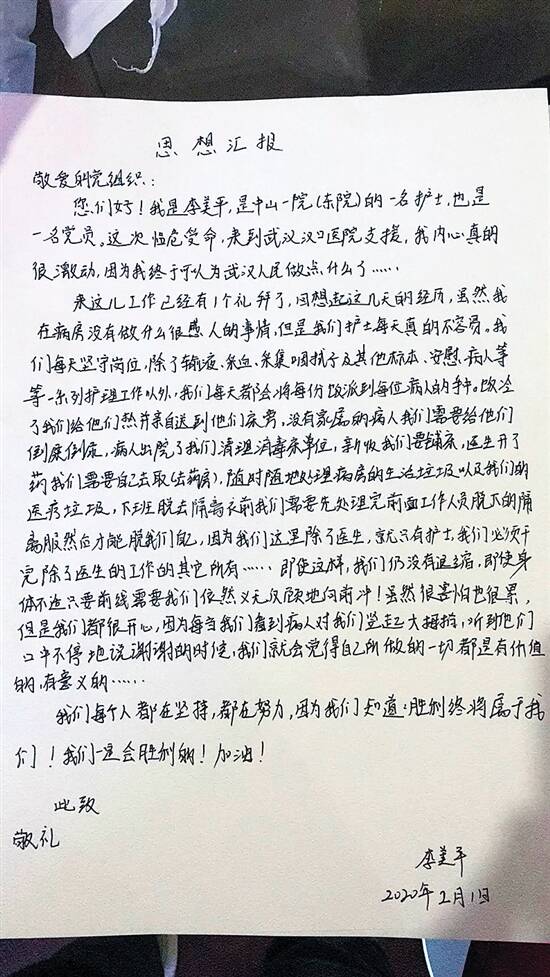 思想汇报
敬爱的党组织：
您们好！我是李美平，是中山一院（东院）的一名护士，也是
一名党员。这次临危受命，来到武汉汉口医院支援，我内心真的
很激动，因为我终于可以为武汉人民做点什么了……
来这儿工作已经有1个礼拜了，回想起这几天的经历，虽然我
在病房没有做什么很感人的事情，但是我们护士每天真的不容易。我
们每天坚守岗位，除了输液、采血、采集咽拭子及其他标本、安慰病人等
等一系列护理工作以外，我们每天都会将每份饭派到每位病人的手中。饭冷
了我们给他们热并亲自送到他们床旁，没有家属的病人我们需要给他们
倒尿倒屎，病人出院了我们清理消毒床单位，新收我们要铺床，医生开了
药我们需要自己去取（去药房），随时随地处理病房的生活垃圾以及我们的
医疗垃圾，下班脱去隔离衣前我们需要先处理完前面工作人员脱下的隔
离服然后才能脱我们自己，因为我们这里除了医生，就只有护士，我们必须干
完除了医生的工作的其它所有……即使这样，我们仍没有退缩，即使身
体不适只要前线需要我们依然义无反顾地向前冲！虽然很害怕也很累，
但是我们都很开心，因为每当我们看到病人对我们竖起大拇指，听到他们
口中不停地说谢谢的时候，我们就会觉得自己所做的一切都是有价值
的，有意义的……
我们每个人都在坚持，都在努力，因为我们知道：胜利终将属于我
们！我们一定会胜利的！加油！
此致
敬礼
李美平
2020年2月1日